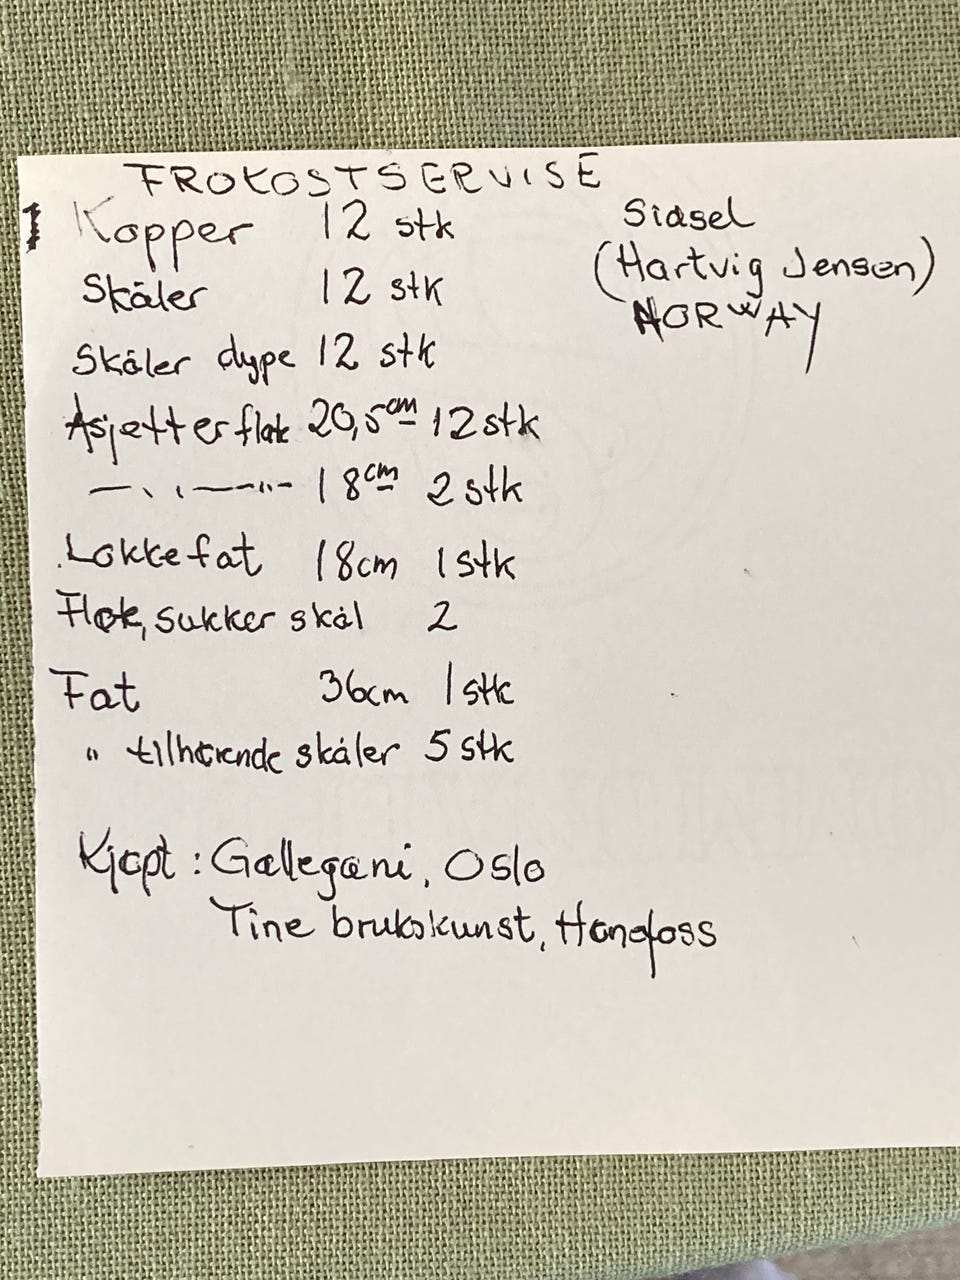 FROKOSTSERVISE
Kopper 12 stk
Skåler 12 stk
Skåler dype 12 stk
Asjetter flat 20,5 cm 12 stk
— ‚ ‚ —–"- 18 cm 2 stk
Lokkefat 18cm 1 stk
Fløte, sukker skål 2
Fat 36cm 1 stk
" tilhørende skåler 5 stk
Kjøpt : Gallegani, Oslo
Tine brukskunst, Hønefoss
Sidsel
(Hartvig Jensen)
NORWAY